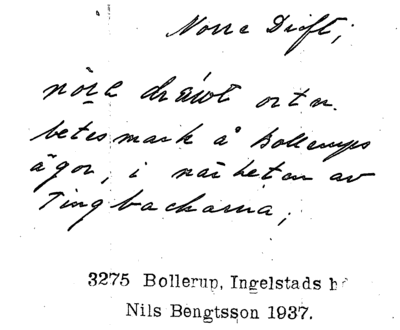 Norra Drift;
betesmark å Bollerups
ägor, i närheten av
Tingbackarna;
3275 Bollerup, Ingelstads
Nils Bengtsson 1937.